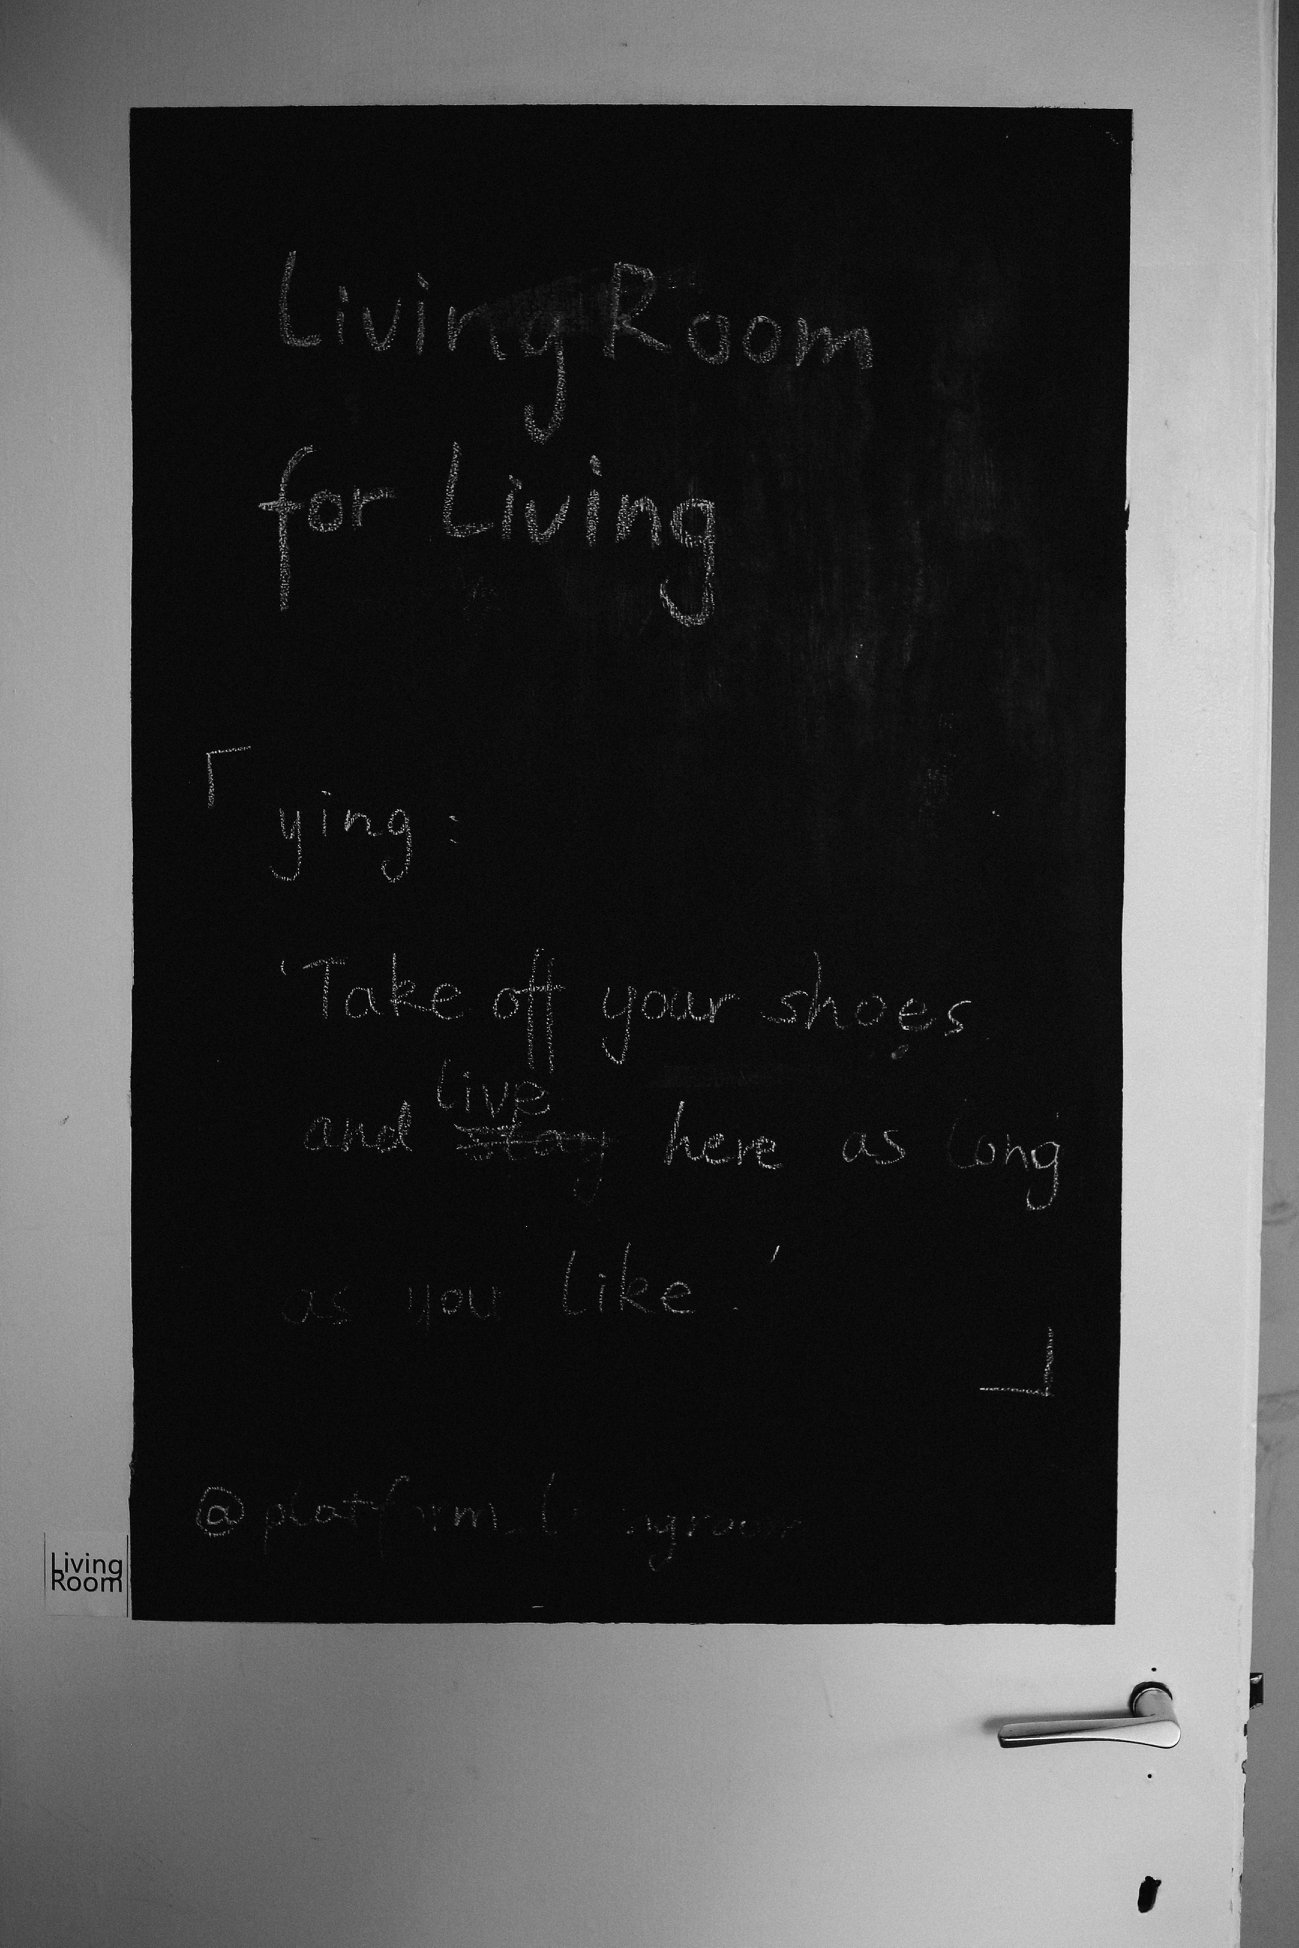 Living Room
for Living
「ying:
'Take off your shoes
and live stay here as long
as you like.'
」
@platform_livingroom
Living
Room